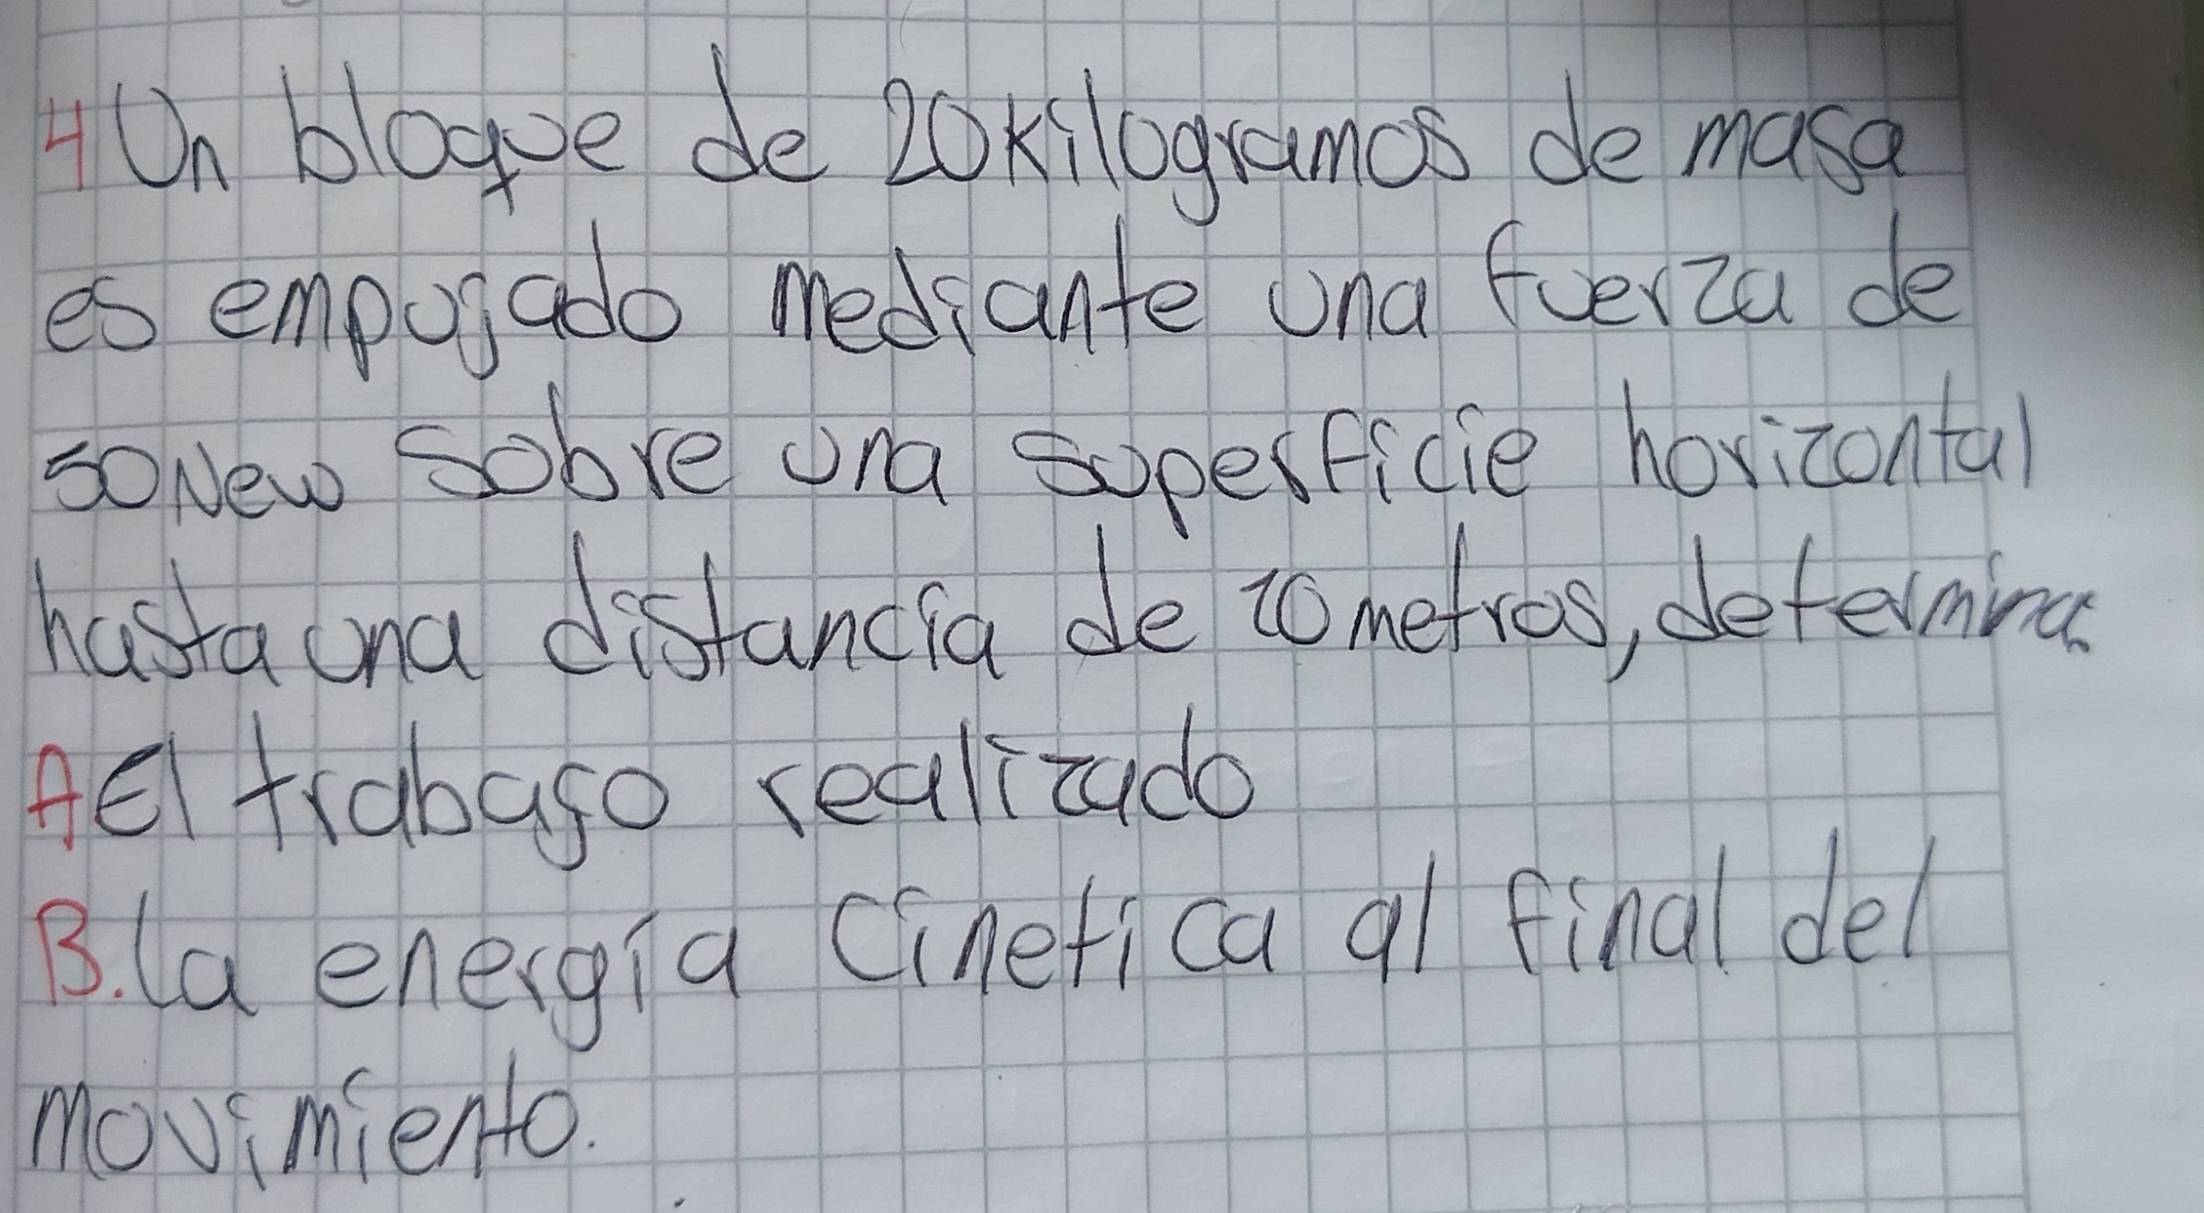 4 Un bloque de 20kilogramos de masa
es empujado mediante una fuerza de
50New sobre una superficie horizontal
hasta una distancia de 10 metros, determina
A El trabajo realizado
B. la energía Cinetica al final del
movimiento.